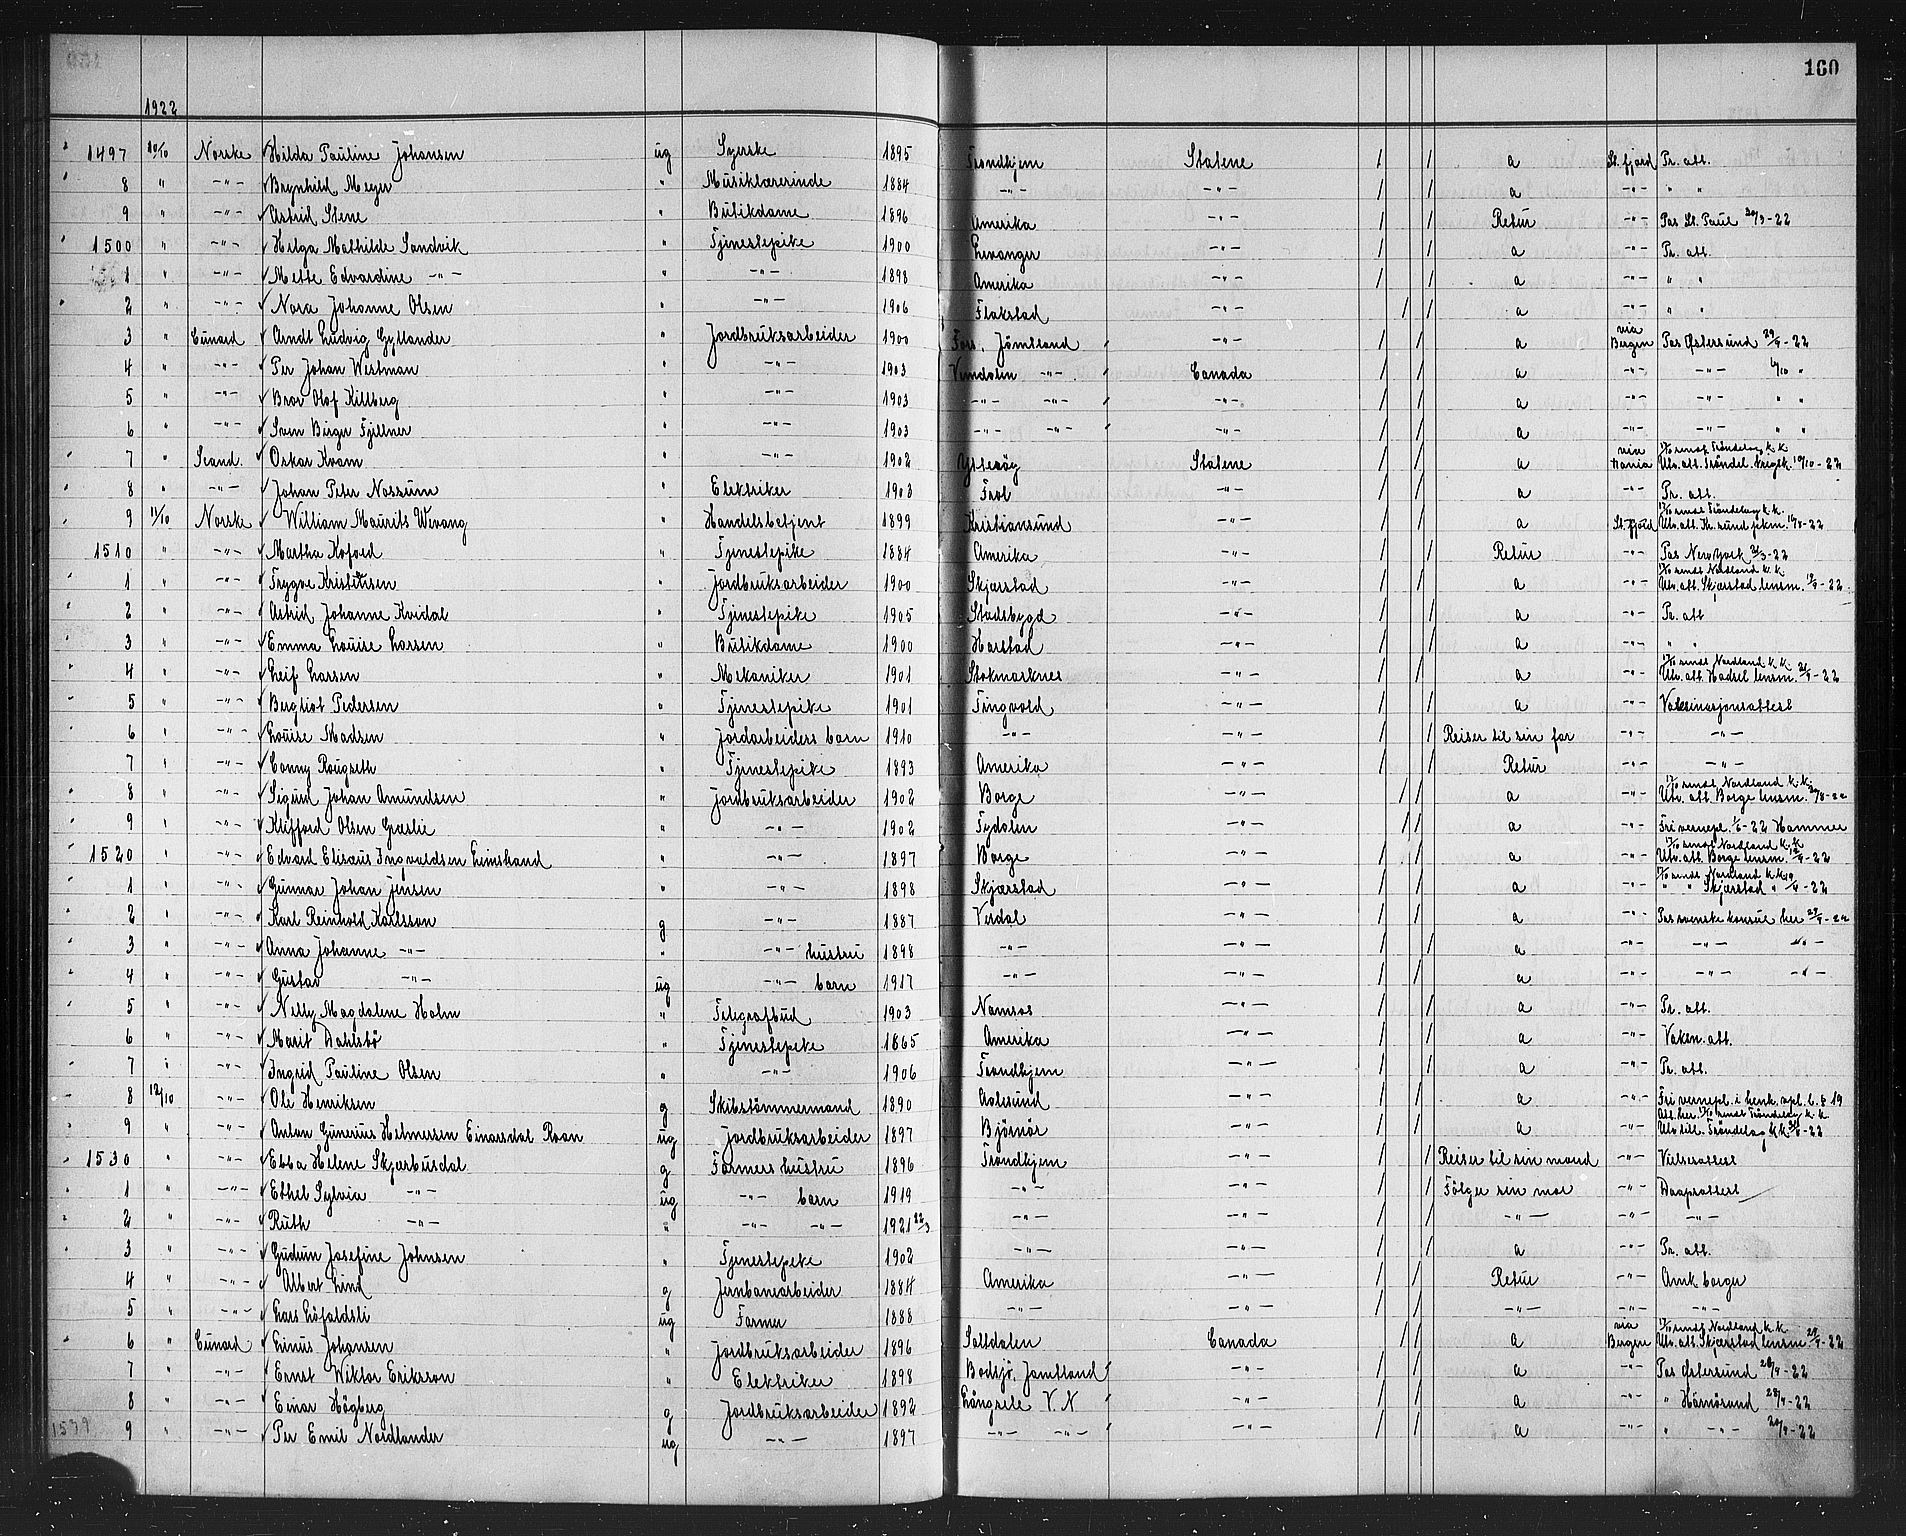 160
1922
1497 10/10 Norske Hilda Pauline Johansen ug Syerske 1895 Trondhjem Statene / / a St.fjord Pr. att.
8 " -"- Brynhild Meyer " Musiklærerinde 1884 -"- -"- / / a -"- " "
9 " -"- Astrid Stene " Butikdame 1896 Amerika -"- / / Retur -"- Pas St. Paul 20/9-22
1500 " -"- Helga Mathilde Sandvik " Tjenestepike 1900 Levanger -"- / / a -"- Pr. att.
1 " -"- Mette Edvardine -"- " -"- 1898 Amerika -"- / / a -"- " "
2 " -"- Nora Johanne Olsen " -"- 1906 Flakstad -"- / / a -"- " "
3 " Cunard Arndt Ludvig Gyllander " Jordbruksarbeider 1900 Fors, Jämtland -"- / / a via Bergen Pas Østersund 29/9-22
4 " -"- Per Johan Westman " -"- 1903 Vemdalen -"- Canada / / a -"- -"- 4/10 "
5 " -"- Bror Olof Killberg " -"- 1903 -"- -"- -"- / / a -"- -"- " "
6 " -"- Sven Birger Fjellner " -"- 1903 -"- -"- -"- / / a -"- -"- " "
7 " Scand. Oskar Kvam " -"- 1902 Ytterøy Statene / / a via Kania Utv. att. Tröndel. krigsk. 10/10-22
8 " -"- Johan Peter Nossum " Elektriker 1903 Frol -"- / / a -"- Pr. att.
9 11/10 Norske William Maurits Wevang " Handelsbetjent 1899 Kristiansund -"- / / a St.fjord Utv. att. Kr.sund pkm. 16/8-22
1510 " -"- Martha Kofoed " Tjenestepike 1884 Amerika -"- / / Retur -"- Pas New York 21/3-22
1 " -"- Trygve Kristensen " Jordbruksarbeider 1900 Skjærstad -"- / / a -"- Utv. att. Skjærstad lensm. 18/9-22
2 " -"- Astrid Johanne Kvidal " Tjenestepike 1905 Stadsbygd -"- / / a -"- Pr. att
3 " -"- Emma Louise Larsen " Butikdame 1900 Harstad -"- / / a -"- " "
4 " -"- Leif Larsen " Mekaniker 1901 Stokmarknes -"- / / a -"- Utv. att. Hadsel lensm. 21/9-22
5 " -"- Bergliot Pedersen " Tjenestepike 1901 Tingvold -"- / / a -"- Vaksinasjonsattest
6 " -"- Louise Madsen " Jordarbeiders barn 1910 -"- -"- / / Reiser til sin far -"- -"-
7 " -"- Conny Rougseth " Tjenestepike 1893 Amerika -"- / / Retur -"- -"-
8 " -"- Sigurd Johan Amundsen " Jordbruksarbeider 1902 Borge -"- / / a -"- Utv. att. Borge lensm. 30/8-22
9 " -"- Klifford Olsen Græslie " -"- 1902 Tydalen -"- / / a -"- Fri vernepl. 1/6-22 Hammer
1520 " -"- Edvard Elisæus Ingvaldsen Leinstrand " -"- 1897 Borge -"- / / a -"- Utv. att. Borge lensm. 12/9-22
1 " -"- Gunnar Johan Jensen " -"- 1898 Skjærstad -"- / / a -"- " " Skjærstad " 18/9-22
2 " -"- Karl Reinhold Karlsson g -"- 1887 Verdal -"- / / a -"- Pas svenske konsul her 29/9-22
3 " -"- Anna Johanne -"- " -"- hustru 1898 -"- -"- / / a -"- -"- -"-
4 " -"- Gustav -"- ug -"- barn 1917 -"- -"- / / a -"- -"- -"-
5 " -"- Nelly Magdalene Holm " Telegrafbud 1903 Namsos -"- / / a -"- Pr. att.
6 " -"- Marit Dahlsbö " Tjenestepike 1865 Amerika -"- / / a -"- Vaksn. att.
7 " -"- Ingrid Pauline Olsen " -"- 1906 Trondhjem -"- / / a -"- Pr. att.
8 12/10 -"- Ole Henriksen g Skibstömmermand 1890 Aalesund -"- / / a -"- Fri vernepl. i henh. vpl. l. § 19
9 " -"- Anton Gunerius Helmersen Einarsdal Roan ug Jordbruksarbeider 1897 Björnör -"- / / a -"- Utv. till. Tröndelag k.k. 31/8-22
1530 " -"- Ebba Helene Skjærbusdal g Farmers hustru 1896 Trondhjem -"- / / Reiser til sin mand -"- Vielsesattest
1 " -"- Ethel Sylvia -"- ug -"- barn 1919 -"- -"- / / Fölger sin mor -"- Daapsattest
2 " -"- Ruth -"- " -"- -"- 1921 22/3 -"- -"- / / -"- -"- -"-
3 " -"- Gudrun Josefine Johnsen " Tjenestepike 1902 -"- -"- / / a -"- Pr. att.
4 " -"- Albert Lind g Jernbanearbeider 1884 Amerika -"- / / Retur -"- Amk. borger
5 " -"- Lars Löfaldsli ug Farmer 1888 -"- -"- / / -"- -"- -"-
6 " Cunard Einus Johansen " Jordbruksarbeider 1896 Saltdalen Canada / / a via Bergen Utv. att. Skjærstad lensm. 29/9-22
7 " -"- Ernst Wiktor Eriksson " Elektriker 1898 Bodsjö, Jämtland -"- / / a -"- Pas Østersund 28/9-22
8 " -"- Einar Högberg g Jordbruksarbeider 1892 Långsele V.N -"- / / a -"- " Härnösand 28/9-22
1539 9 " -"- Per Emil Nordlander ug -"- 1897 -"- -"- -"- / / a -"- " -"- 20/9-22